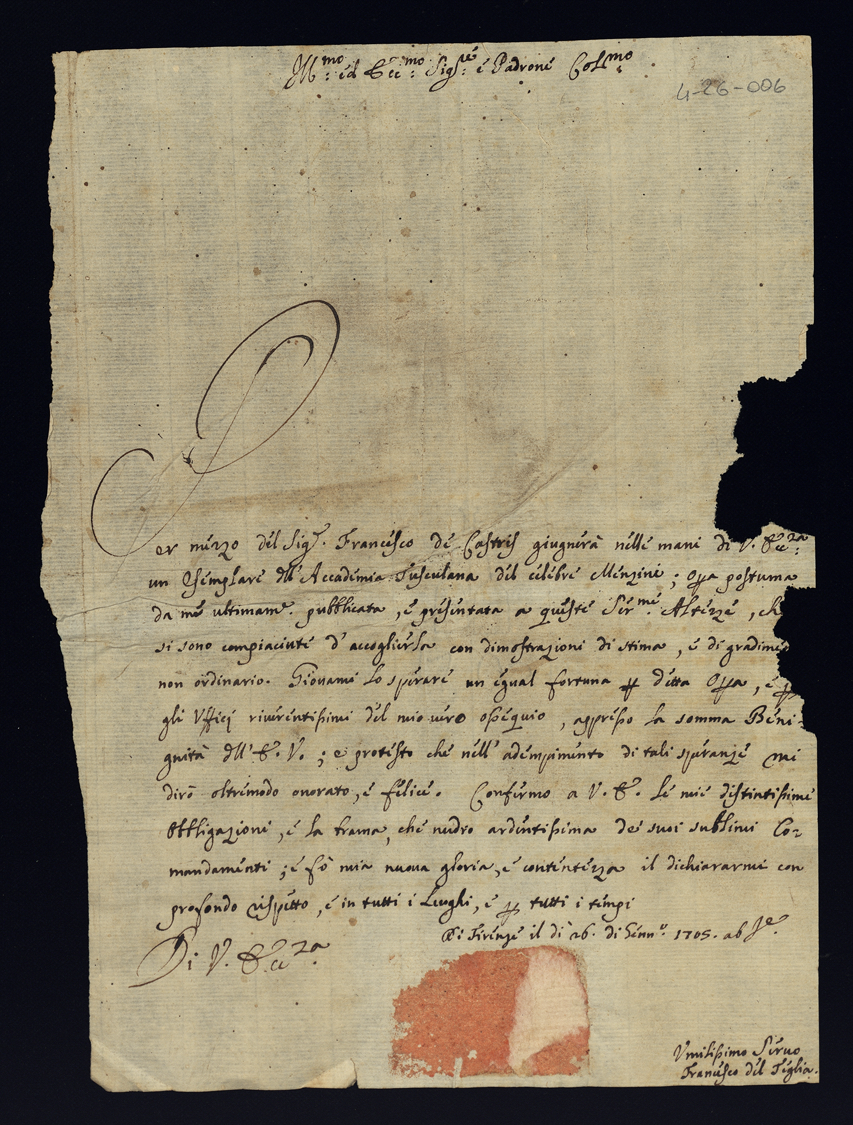 Ill.mo ed Ecc.mo Sig.re e Padrone Col.mo
4-26-006
Per mezzo del Sig.r Francesco de Castris giugnerà nelle mani di V. Ecc.za
un Esemplare dell'Accademia Tusculana del celebre Menzini; Opa postuma
da me ultimam.e pubblicata, e presentata a queste Ser.me Altezze, ch
si sono compiaciute d'accoglierla con dimostrazioni di stima, e di gradime
non ordinario. Giovami lo sperare un egual fortuna p detta Opa, e p
gli Uffici riverentissimi del mio vero ossequio, appresso la somma Beni-
gnità dell'E. V.; e protesto che nell'adempimento di tali speranze mi
dirò oltremodo onorato, e felice. Confermo a V. E. le mie distintissime
obbligazioni, e la brama, che nudro ardentissima de suoi sublimi Co-
mandamenti; e fò mia nuova gloria, e contentezza il dichiararmi con
profondo rispetto, e in tutti i Luoghi, e p tutti i tempi
Di Firenze il dì 26. di Genn.o 1705. ab
Di V. Ecc.za
Umilissimo Servo
Francesco del Teglia.